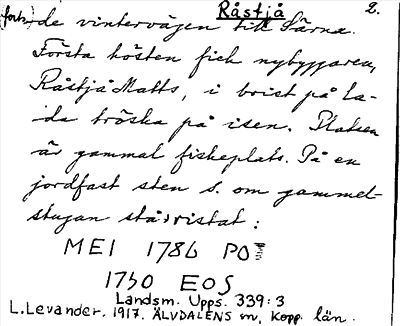 Råstjå 2.
forts.) de vintervägen till Särna.
Första hösten fick nybyggaren,
Råstjå Matts, i brist på la-
da tröska på isen. Platsen
är gammal fiskeplats. På en
jordfast sten s. om gammel-
stugan stå ristat:
MEI 1786 PO
1750 EOS
Landsm. Upps. 339:3
L.Levander. 1917. ÄLVDALENS sn, Kopp. län.